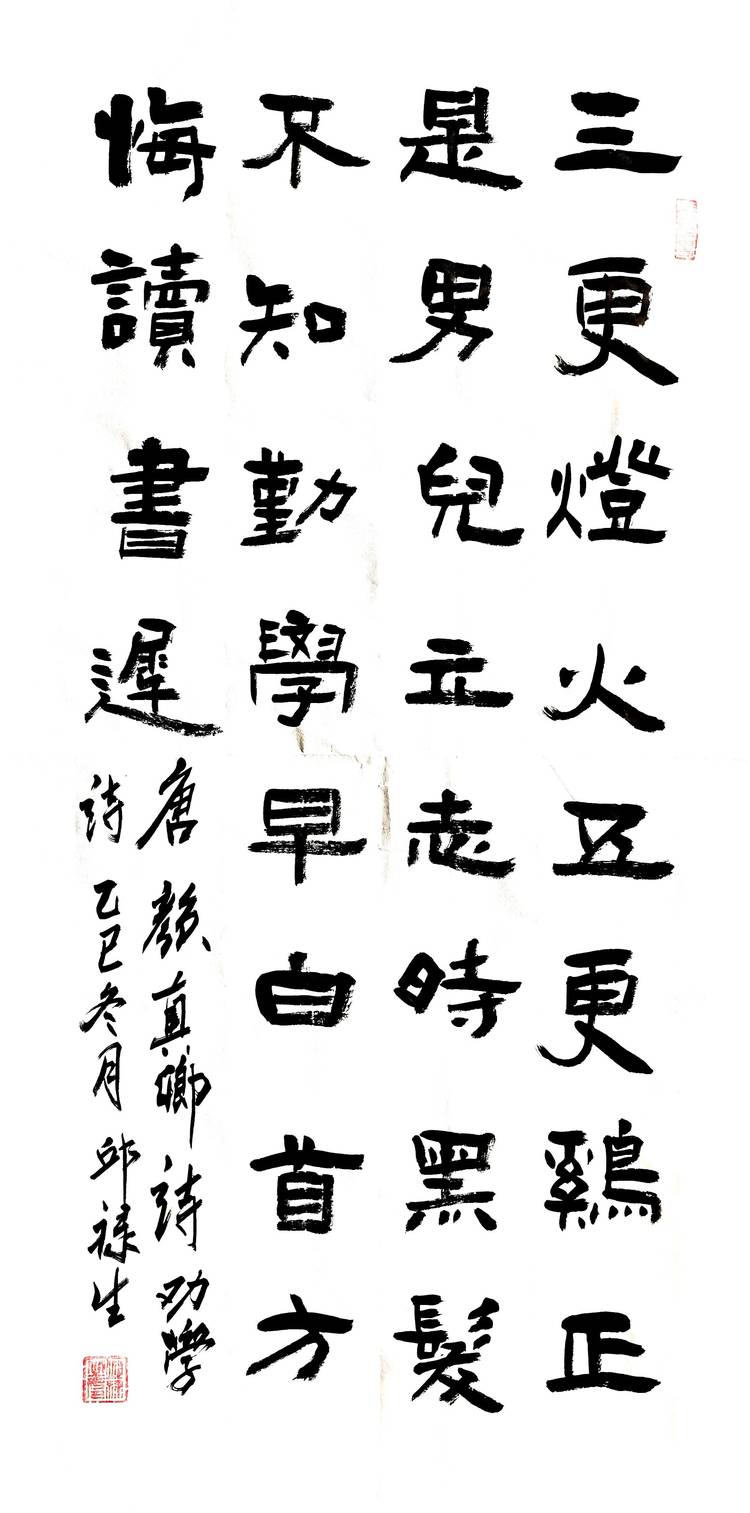 三更燈火五更鷄正
是男兒立志時黑髮
不知勤學早白首方
悔讀書遲
唐顏真卿詩劝學
詩乙巳冬月邱祿生